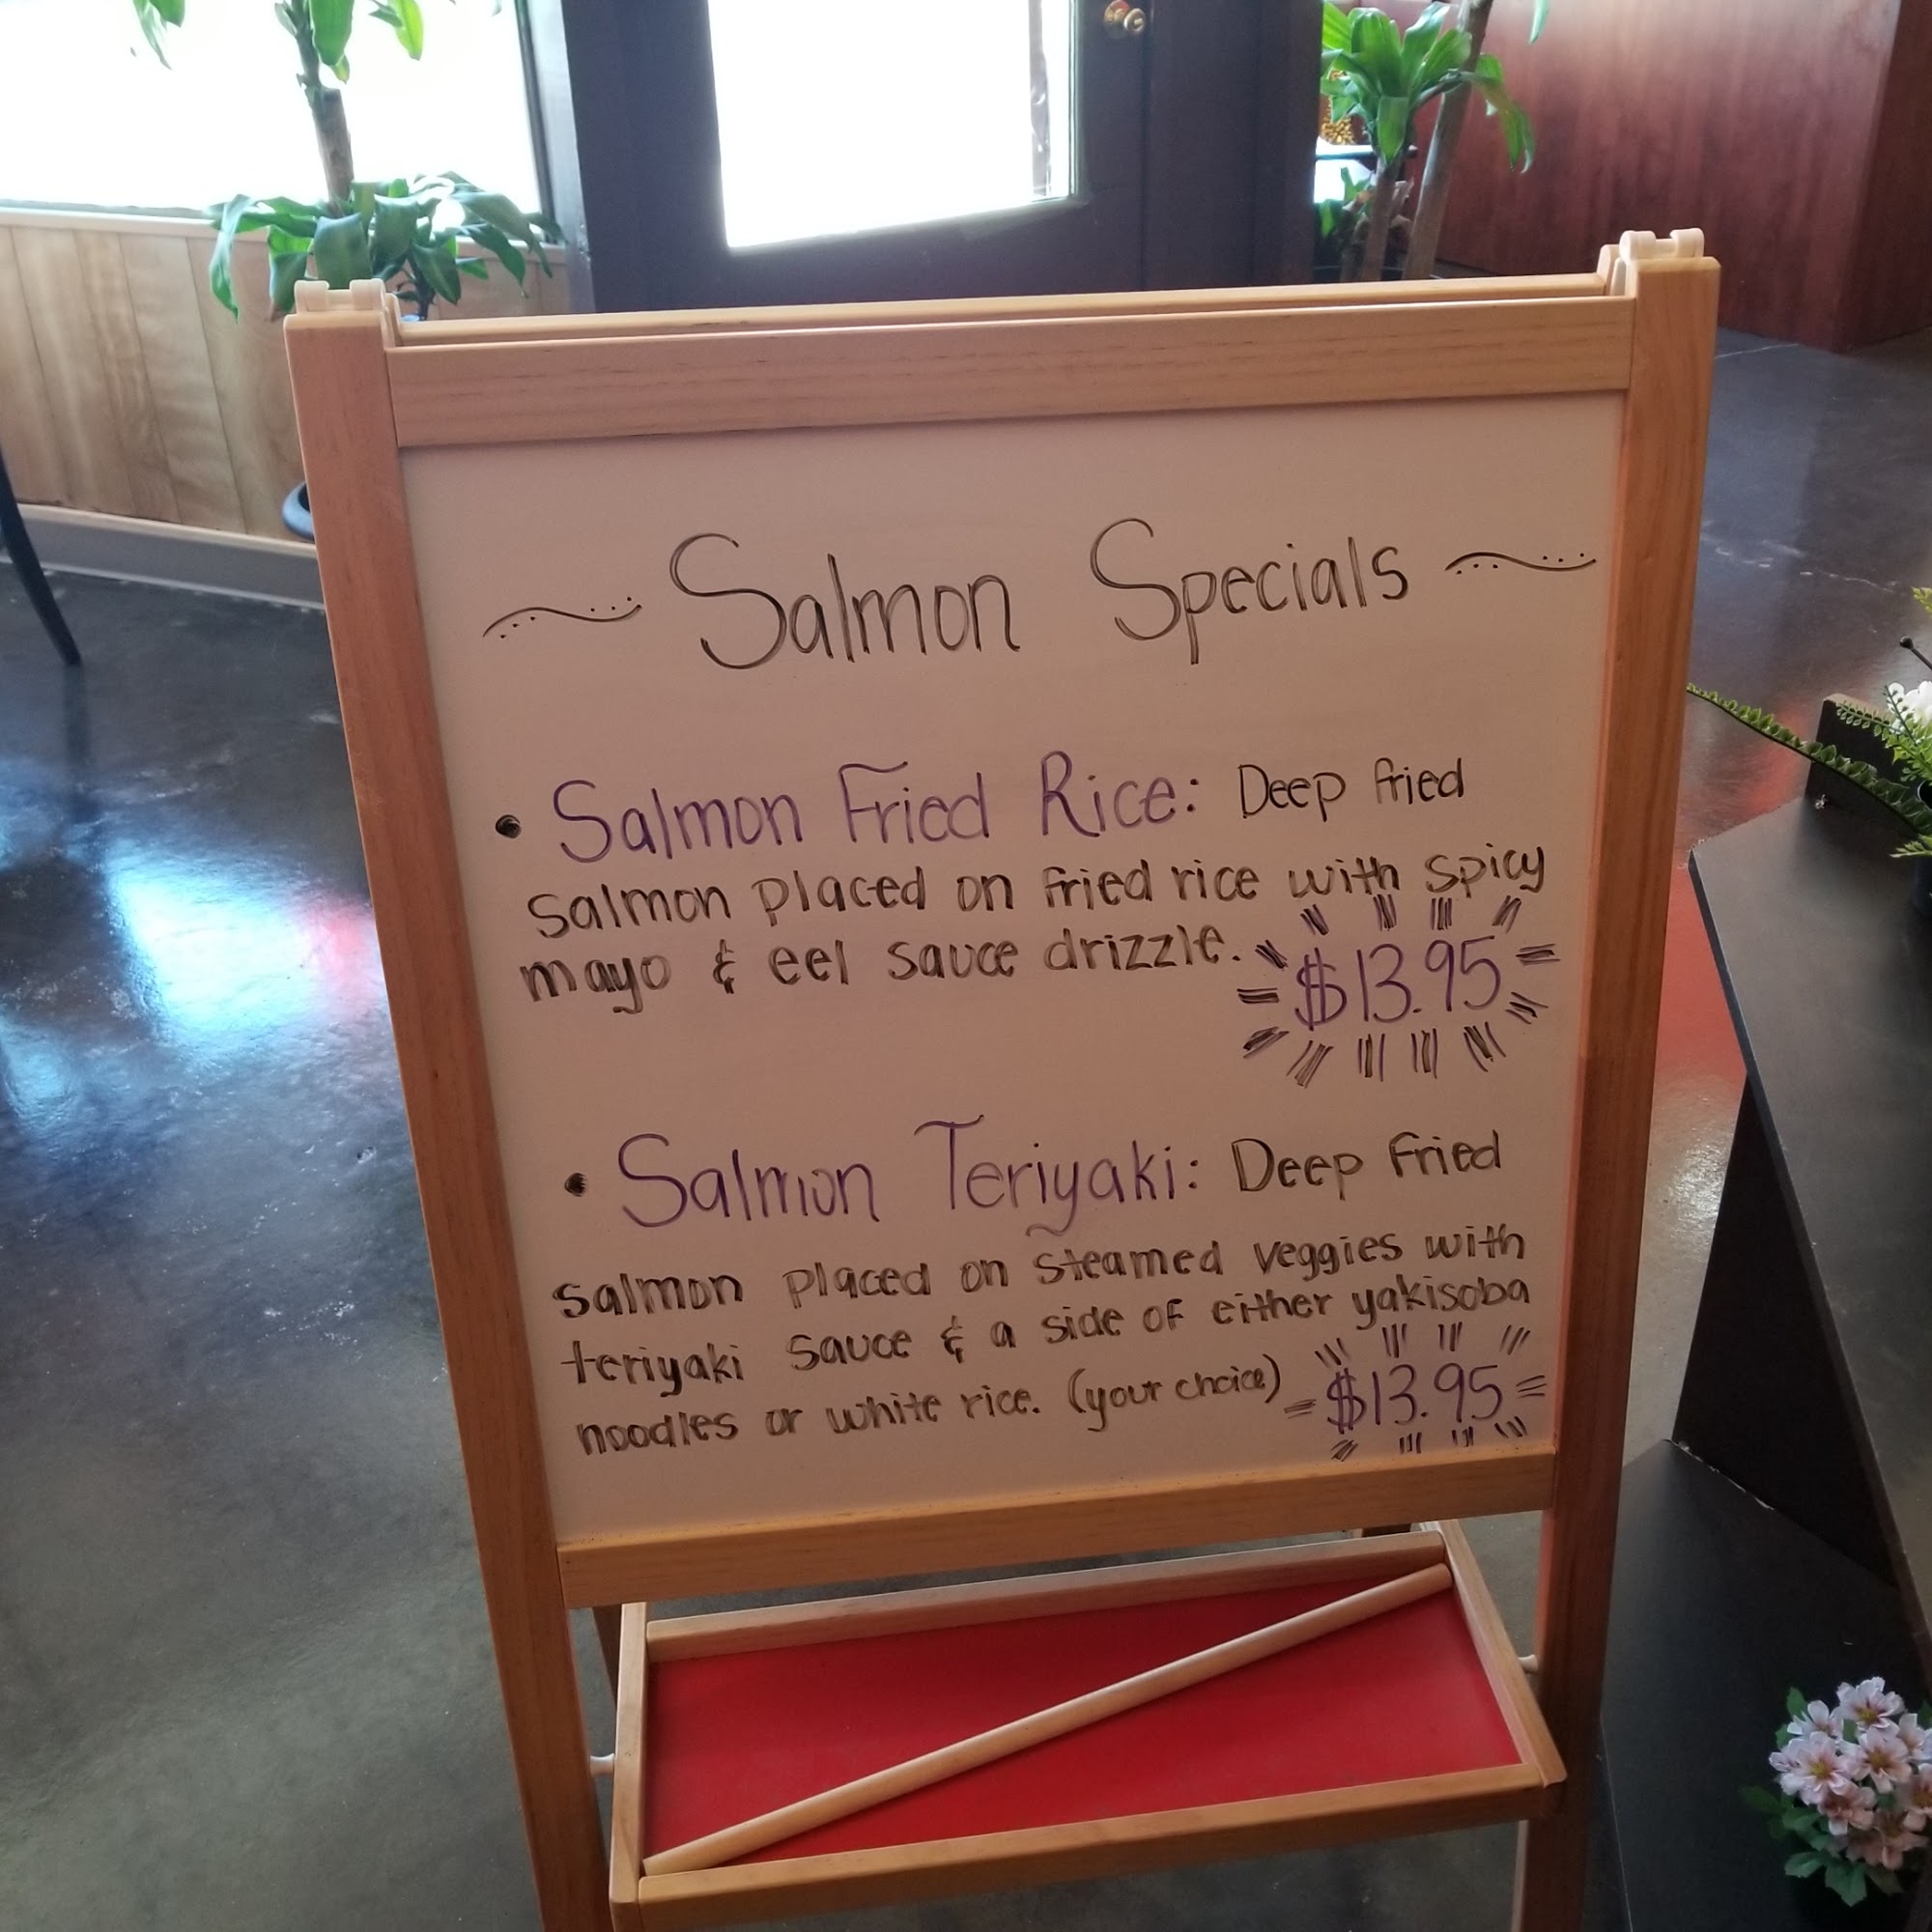 Salmon Specials
• Salmon Fried Rice: Deep fried
salmon placed on fried rice with spicy
mayo & eel sauce drizzle.
$13.95
• Salmon Teriyaki: Deep fried
salmon placed on steamed veggies with
teriyaki sauce & a side of either yakisoba
noodles or white rice. (your choice)
$13.95